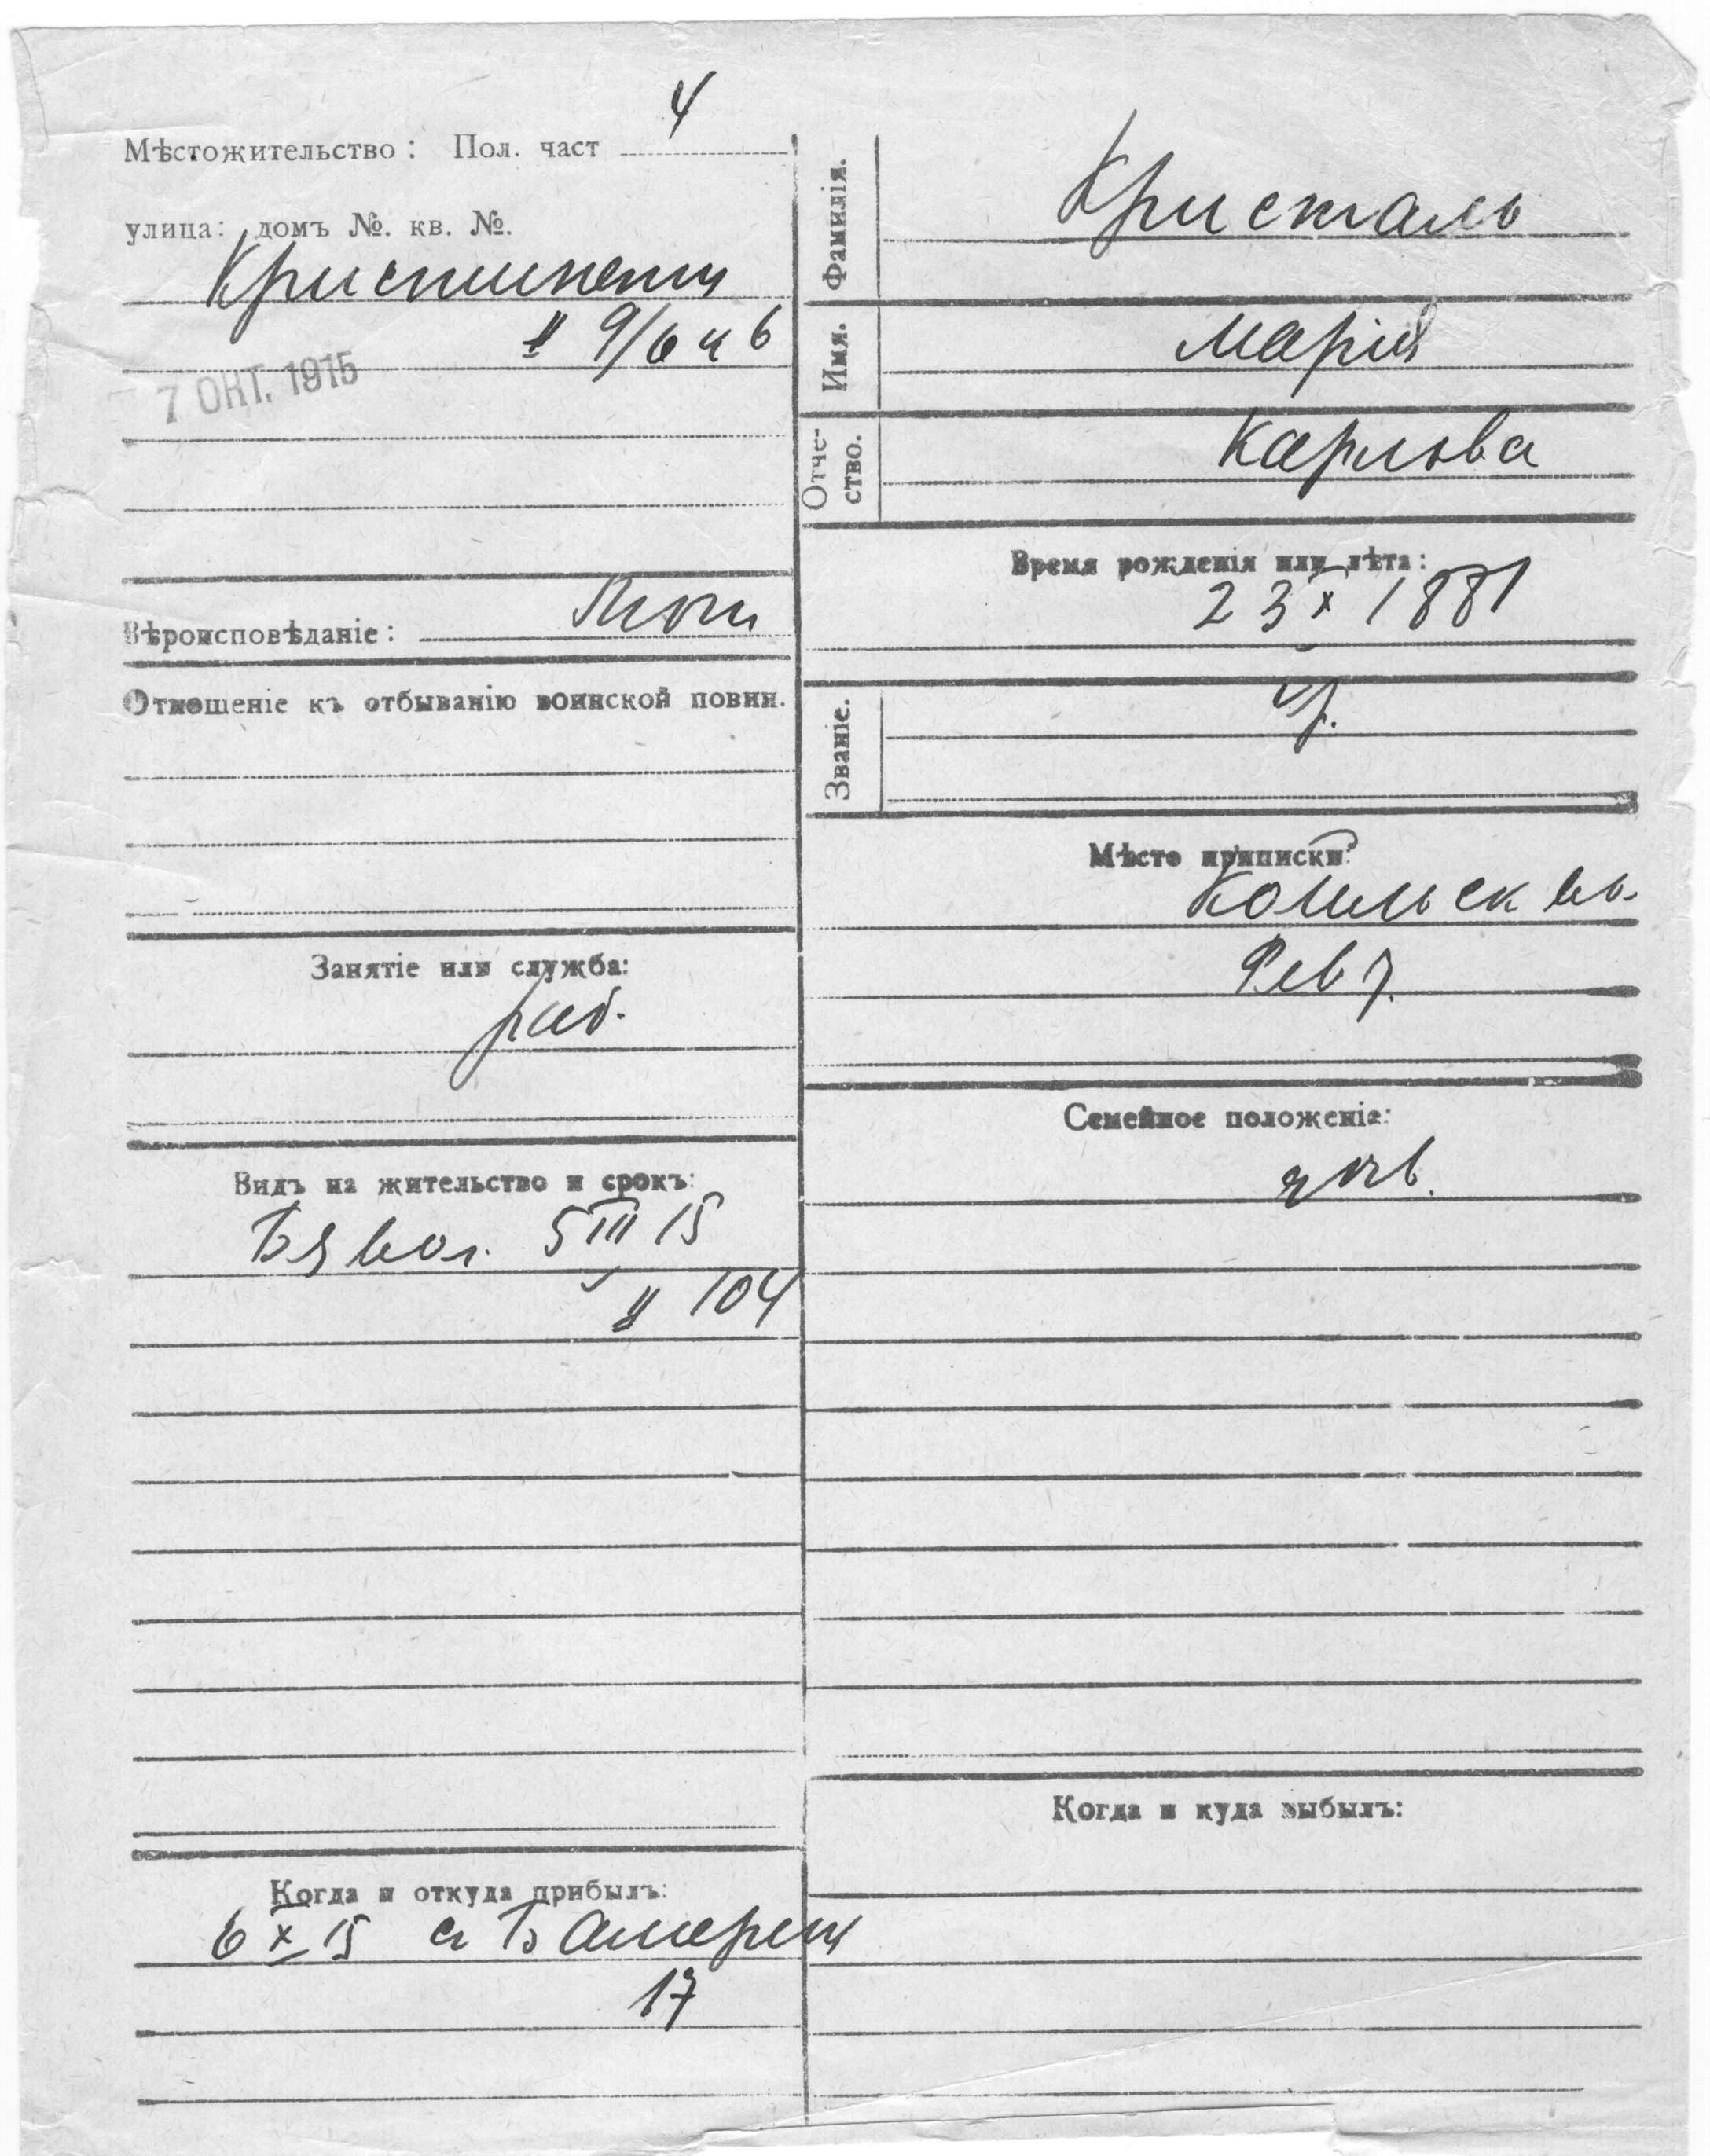 4
Мѣстожительство: Пол. част
улица: домъ №. кв. №.
9/6 4 6
7 ОКТ. 1915
Вѣроисповѣданіе: Лют
Отношеніе къ отбыванію воинской повин.
Занятіе или служба:
раб.
Видъ на жительство и срокъ:
вол. 5 III 15
104
Когда и откуда прибылъ:
6 X 15 съ
17
Фамилія. Кристаль
Имя. Марія
Отче-
ство. Карлова
Время рожденія или лѣта:
23 X 1881
Званіе. кр.
Мѣсто приписки:
Рев г.
Семейное положеніе:
Когда и куда выбылъ: